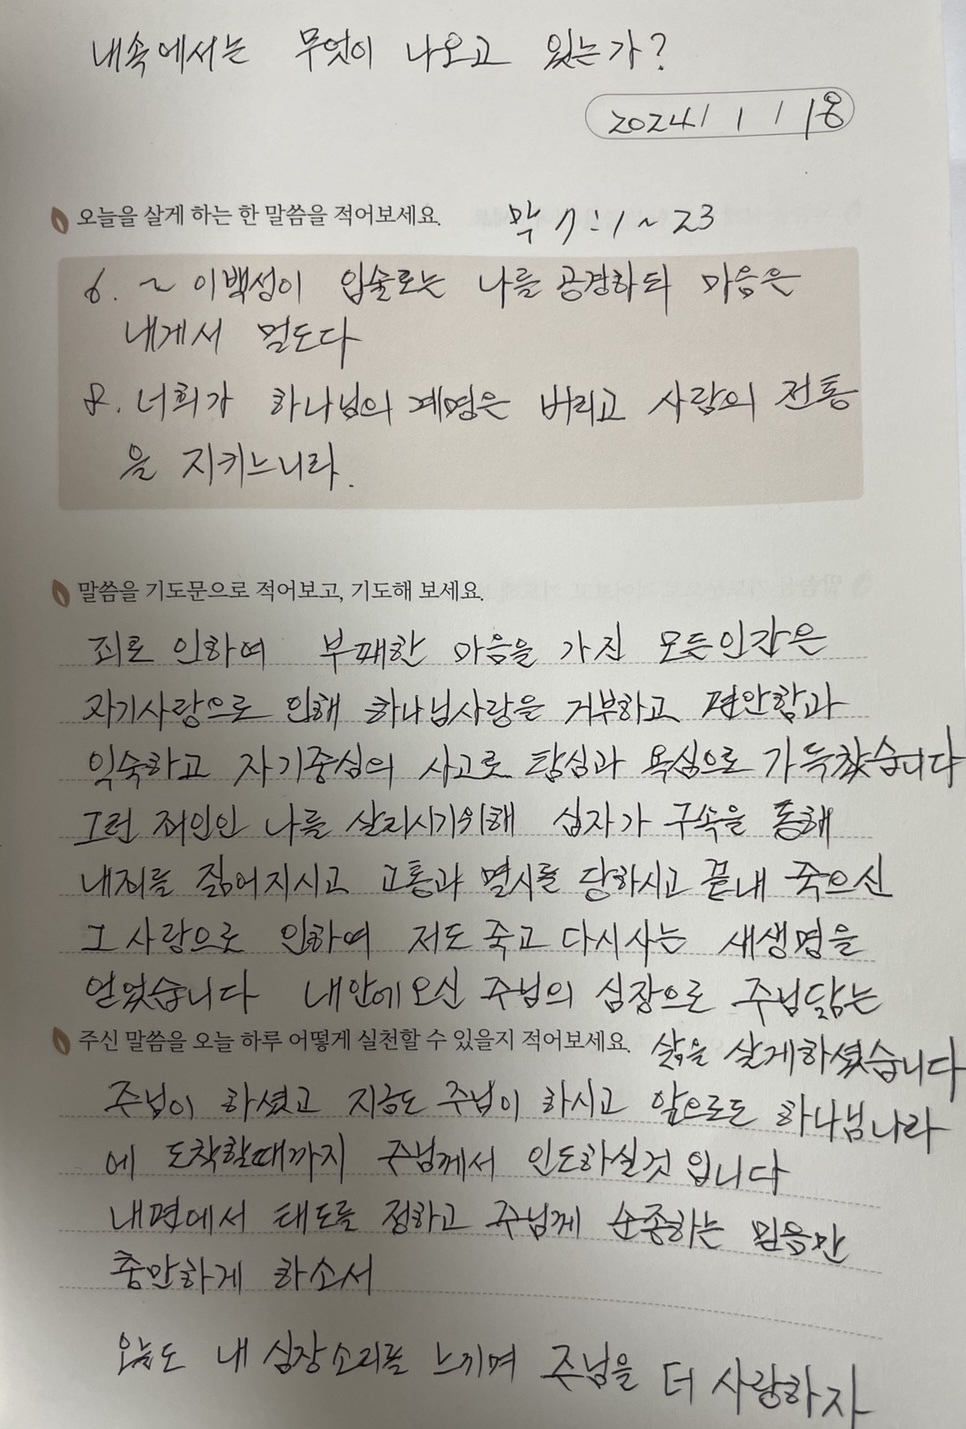 내속에서는 무엇이 나오고 있는가?
2024 / 1 / 18
오늘을 살게 하는 한 말씀을 적어보세요. 막 7:1~23
6. ~ 이백성이 입술로는 나를 공경하되 마음은
내게서 멀도다
8. 너희가 하나님의 계명은 버리고 사람의 전통
을 지키느니라.
말씀을 기도문으로 적어보고, 기도해 보세요.
죄로 인하여 부패한 마음을 가진 모든인간은
자기사랑으로 인해 하나님사랑을 거부하고 편안함과
익숙하고 자기중심의 사고로 탐심과 욕심으로 가득찼습니다
그런 죄인인 나를 살리시기위해 십자가 구속을 통해
내죄를 짊어지시고 고통과 멸시를 당하시고 끝내 죽으신
그 사랑으로 인하여 저도 죽고 다시사는 새생명을
얻었습니다 내안에오신 주님의 심장으로 주님닮는
주신 말씀을 오늘 하루 어떻게 실천할 수 있을지 적어보세요. 삶을 살게하셨습니다
주님이 하셨고 지금도 주님이 하시고 앞으로도 하나님나라
에 도착할때까지 주님께서 인도하실것 입니다
내면에서 태도를 정하고 주님께 순종하는 믿음만
충만하게 하소서
오늘도 내 심장소리를 느끼며 주님을 더 사랑하자